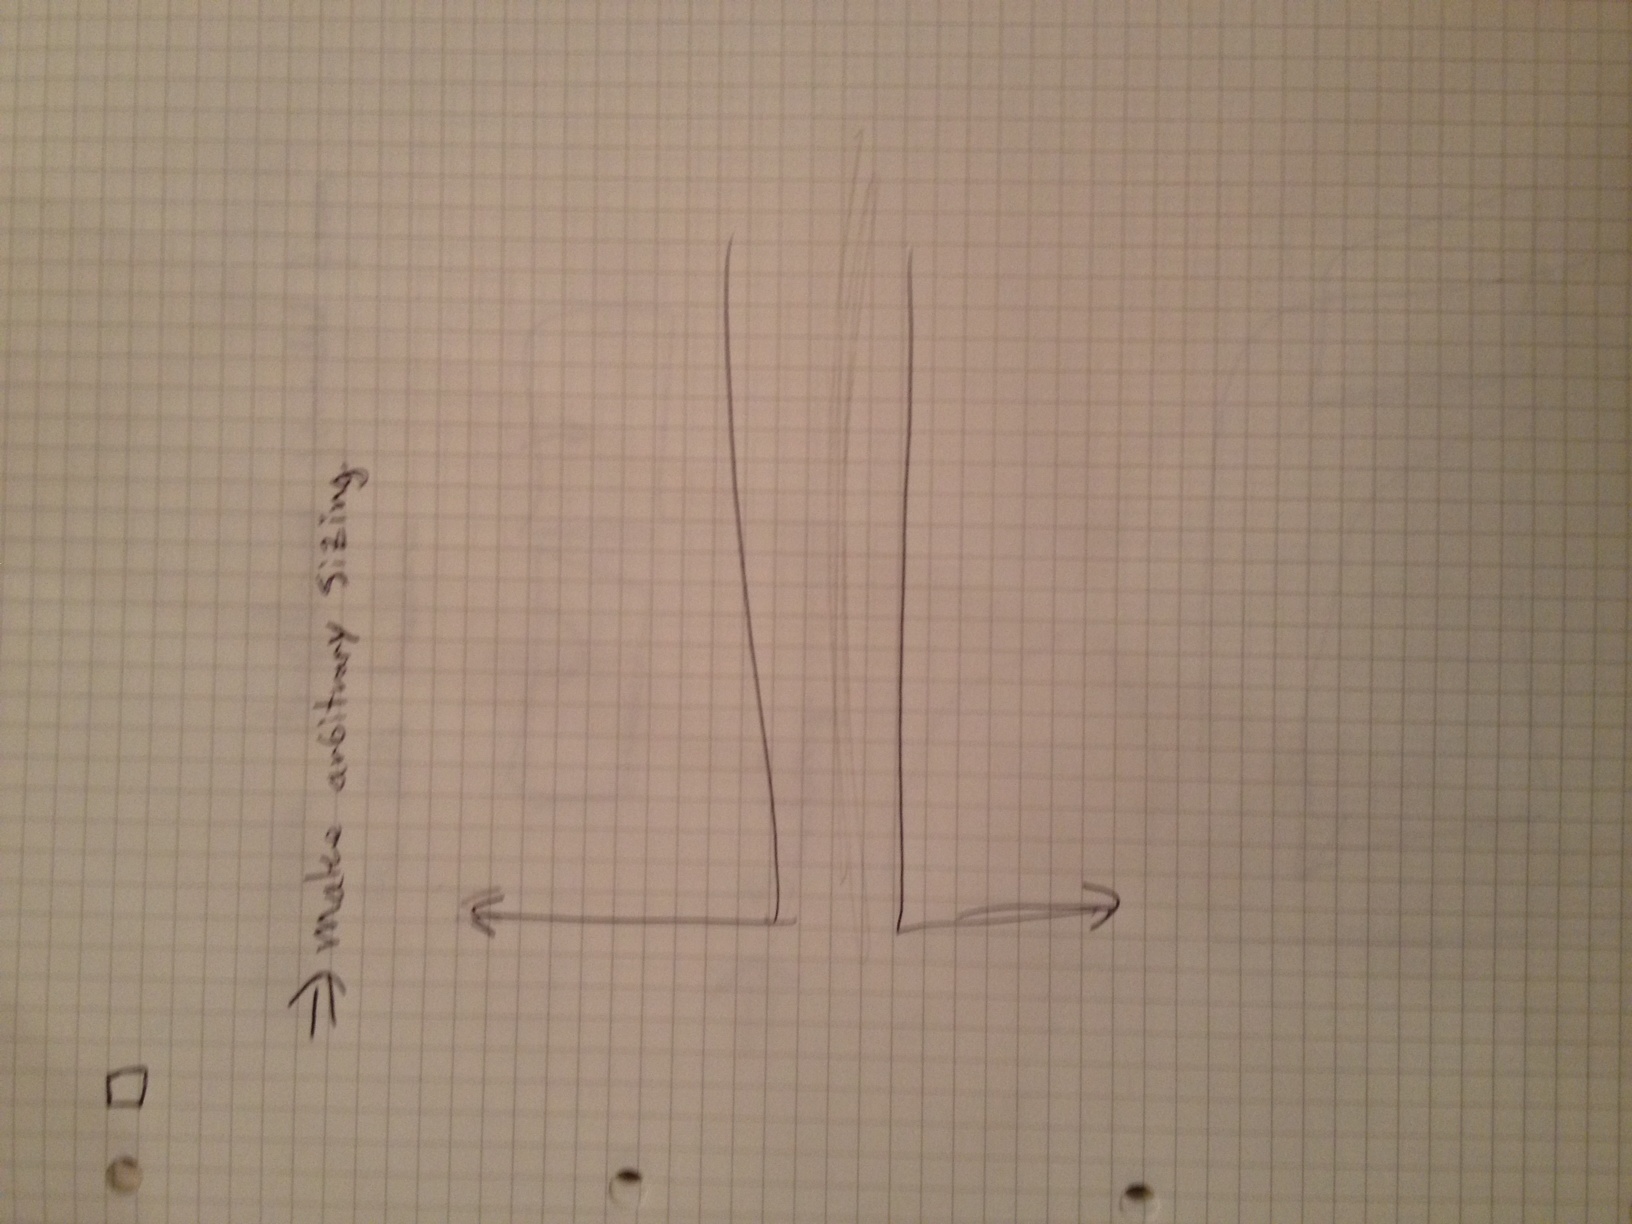 ⇒ make arbitrary sizing.